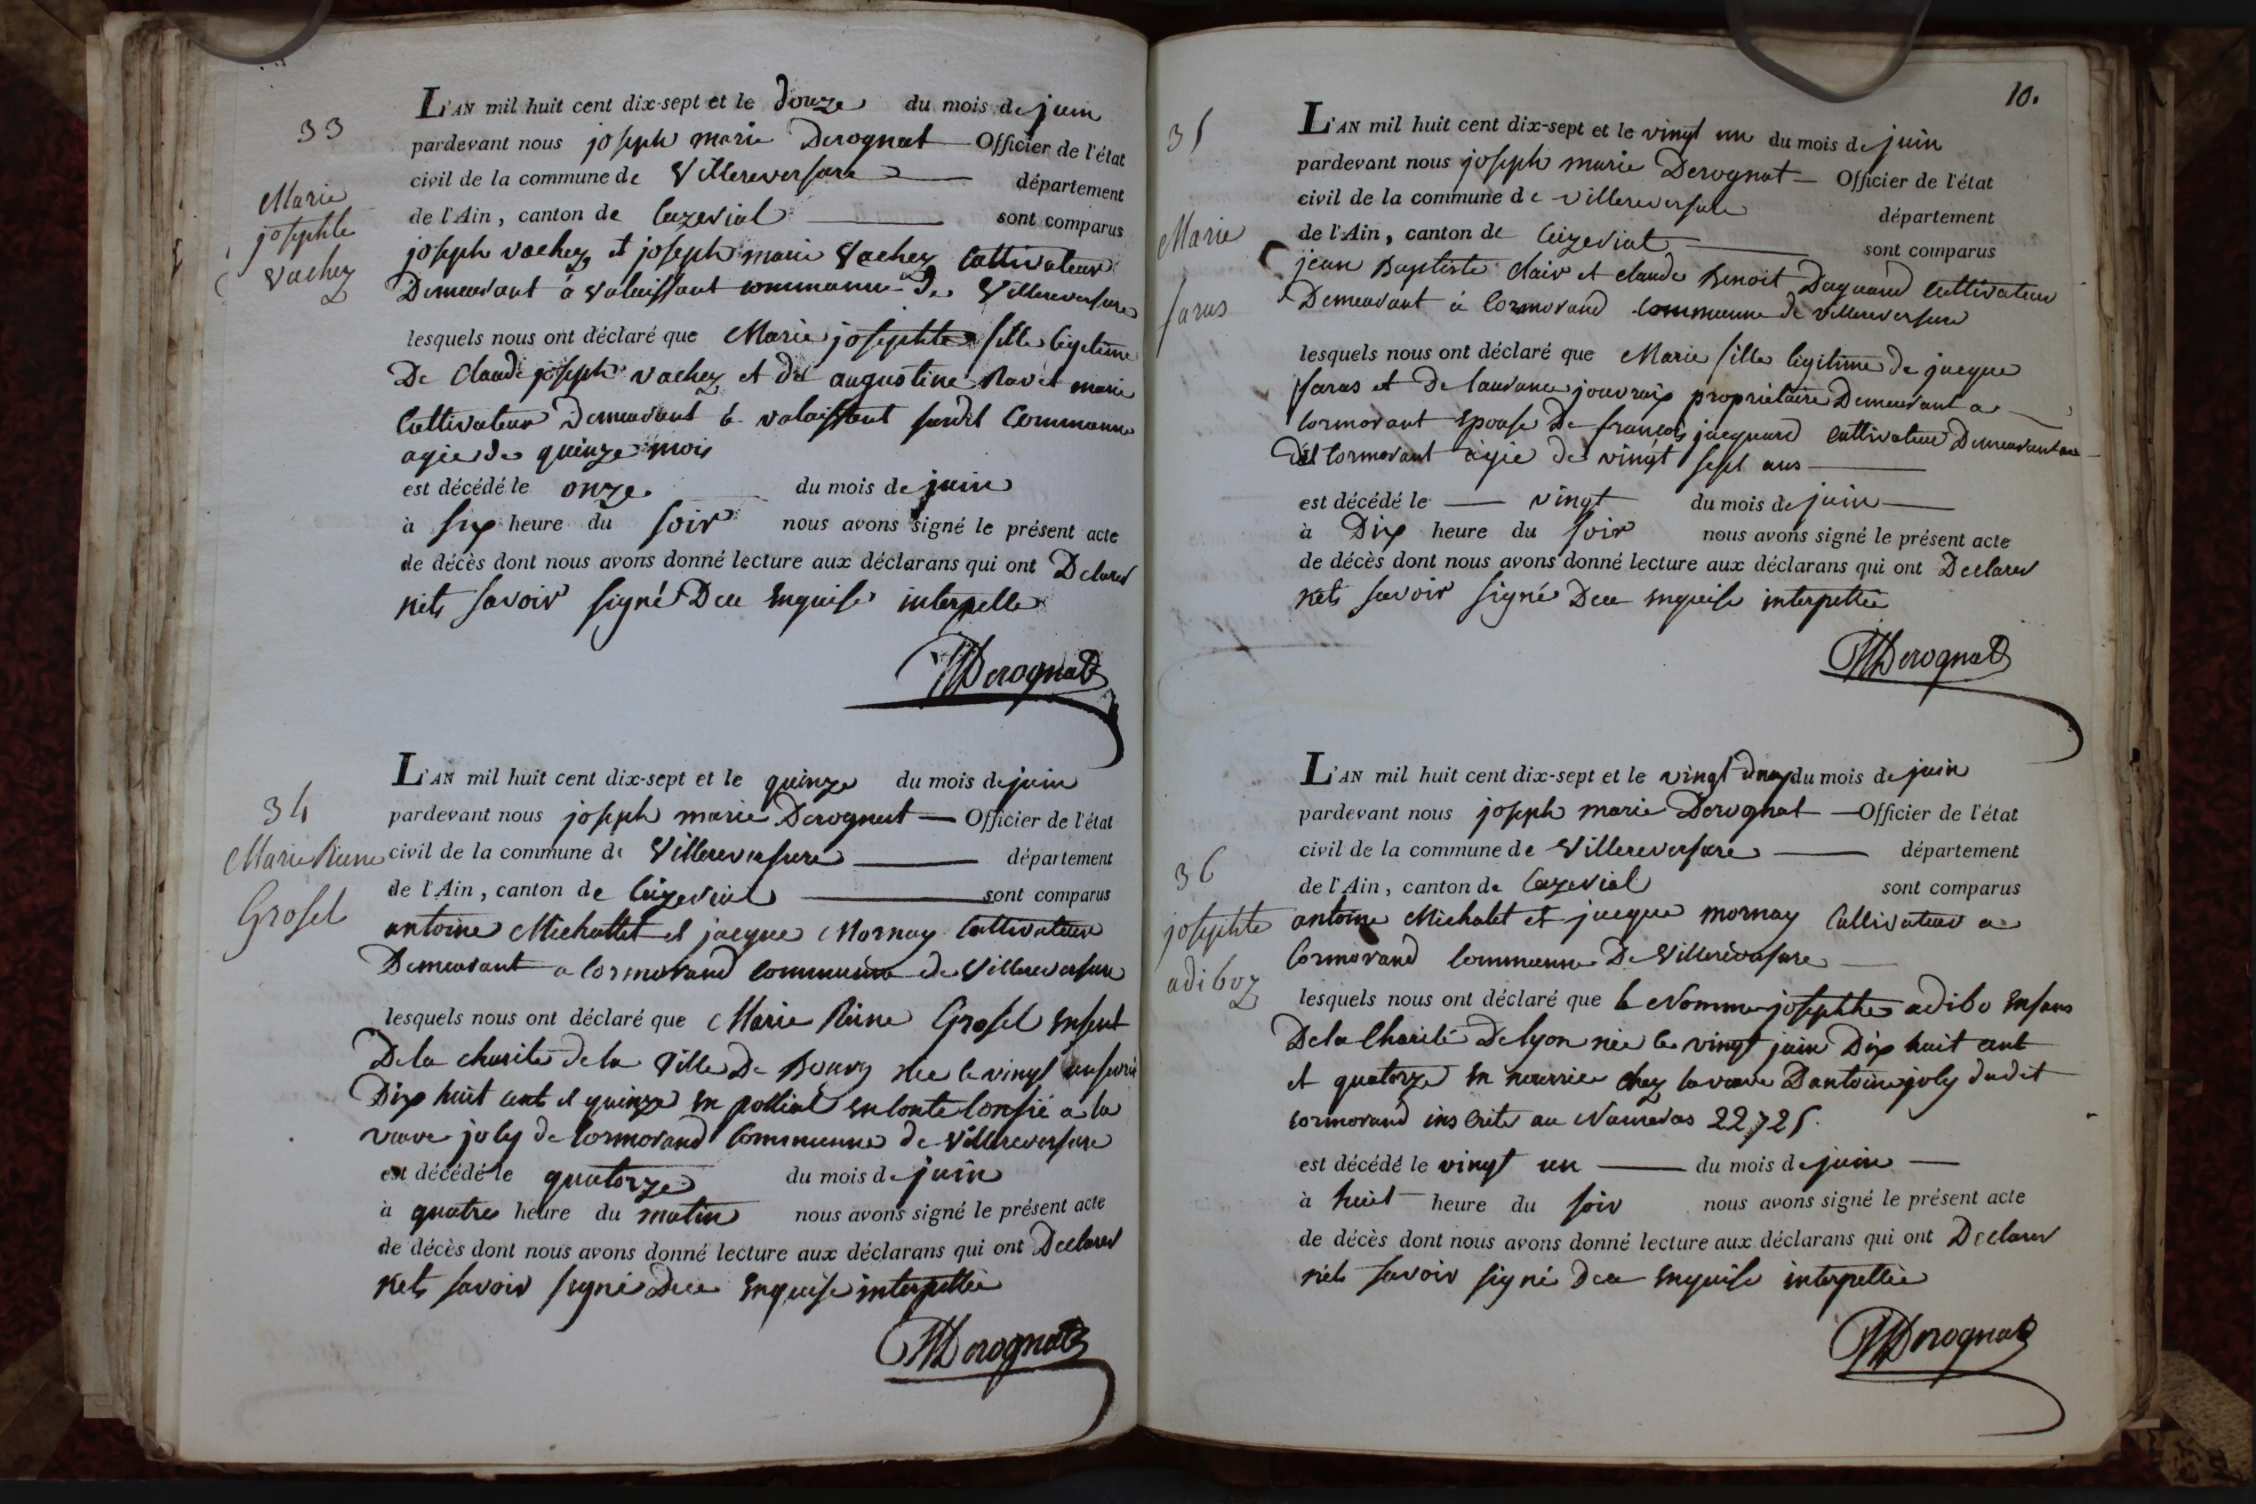 33
Marie
josephte
Vachez
L'AN mil huit cent dix-sept et le douze du mois de juin
pardevant nous joseph marie Derognat Officier de l'état
civil de la commune de Villereversure département
de l'Ain, canton de Ceizeriat sont comparus
joseph vachez et joseph marie Vachez Cultivateur
Demeurant à valeissant commune de Villereversure
lesquels nous ont déclaré que Marie josephte fille legitime
De Claude joseph vachez et de augustine Ravet marie
Cultivateur Demeurant à valaissant susdit Commune
agie de quinze mois
est décédé le onze du mois de juin
à six heure du soir nous avons signé le présent acte
de décès dont nous avons donné lecture aux déclarans qui ont Declarer
nets savoir signé Dee Enquise interpelle
JMDerognat
34
Marie Reine
Grosel
L'AN mil huit cent dix-sept et le quinze du mois de juin
pardevant nous joseph marie Derognat Officier de l'état
civil de la commune de Villereversure département
de l'Ain, canton de Ceizeriat sont comparus
antoine Michallet et jacque Mornay Cultivateur
Demeurant a Cormorand commune de Villereversure
lesquels nous ont déclaré que Marie Reine Grosel Enfent
De la charite de la Ville De Bourg nee le vingt
Dix huit cent et quinze En Confié a la
veuve joly de Cormorand Commune de Villereversure
est décédé le quatorze du mois de juin
à quatre heure du matin nous avons signé le présent acte
de décès dont nous avons donné lecture aux déclarans qui ont Declarer
nets savoir signé Dee Enquise interpellée
JMDerognat
10.
35
Marie
faras
L'AN mil huit cent dix-sept et le vingt un du mois de juin
pardevant nous joseph marie Derognat Officier de l'état
civil de la commune de Villereversure département
de l'Ain, canton de Ceizeriat sont comparus
jean Baptiste Clair et Claude Benoit Daguand Cultivateur
Demeurant à Cormorand commune de Villereversure
lesquels nous ont déclaré que Marie fille legitime de jacque
faras et De laurance propriétaire Demeurant a
Cormorant Epouse De françois jacquard Cultivateur Demeurant au
dit Cormorant agie de vingt sept ans
est décédé le vingt du mois de juin
à Dix heure du soir nous avons signé le présent acte
de décès dont nous avons donné lecture aux déclarans qui ont Declarer
nets savoir signé Dee Enquise interpellée
JMDerognat
36
josephte
adiboz
L'AN mil huit cent dix-sept et le vingt deux du mois de juin
pardevant nous joseph marie Derognat Officier de l'état
civil de la commune de Villereversure département
de l'Ain, canton de Ceizeriat sont comparus
antoine Michalet et jacque mornay Cultivateur a
Cormorand Commune De Villereversure
lesquels nous ont déclaré que le Nomme josephthe adibo Enfans
De la Charité De lyon née le vingt juin Dix huit cent
et quatorze En nourrice chez la veuve D antoine joly dudit
Cormorand inscrite au Numeros 22725.
est décédé le vingt un du mois de juin
à huit heure du soir nous avons signé le présent acte
de décès dont nous avons donné lecture aux déclarans qui ont Declarer
nets savoir signé Dee Enquise interpellée
JMDerognat